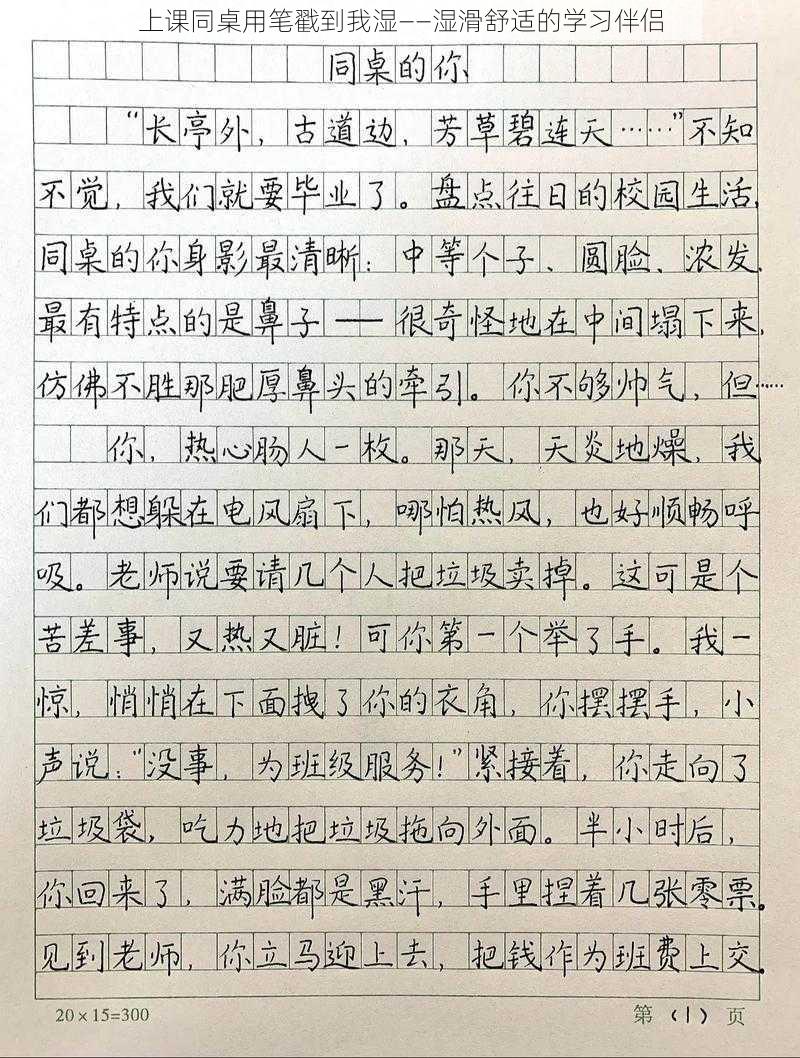 上课同桌用笔戳到我湿——湿滑舒适的学习伴侣
同桌的你
“长亭外，古道边，芳草碧连天……”不知
不觉，我们就要毕业了。盘点往日的校园生活，
同桌的你身影最清晰：中等个子、圆脸、浓发，
最有特点的是鼻子——很奇怪地在中间塌下来，
仿佛不胜那肥厚鼻头的牵引。你不够帅气，但……
你，热心肠人一枚。那天，天炎地燥，我
们都想躲在电风扇下，哪怕热风，也好顺畅呼
吸。老师说要请几个人把垃圾卖掉。这可是个
苦差事，又热又脏！可你第一个举了手。我一
惊，悄悄在下面拽了你的衣角，你摆摆手，小
声说：“没事，为班级服务！”紧接着，你走向了
垃圾袋，吃力地把垃圾拖向外面。半小时后，
你回来了，满脸都是黑汗，手里捏着几张零票。
见到老师，你立马迎上去，把钱作为班费上交。
20×15=300 第（1）页